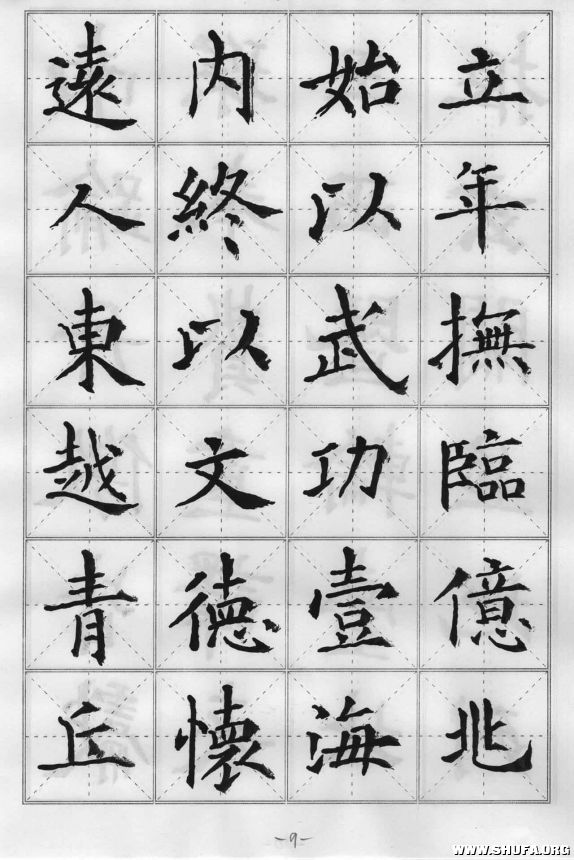 立年撫臨億兆
始以武功壹海
内終以文德懷
遠人東越青丘
-9-
WWW.SHUFA.ORG